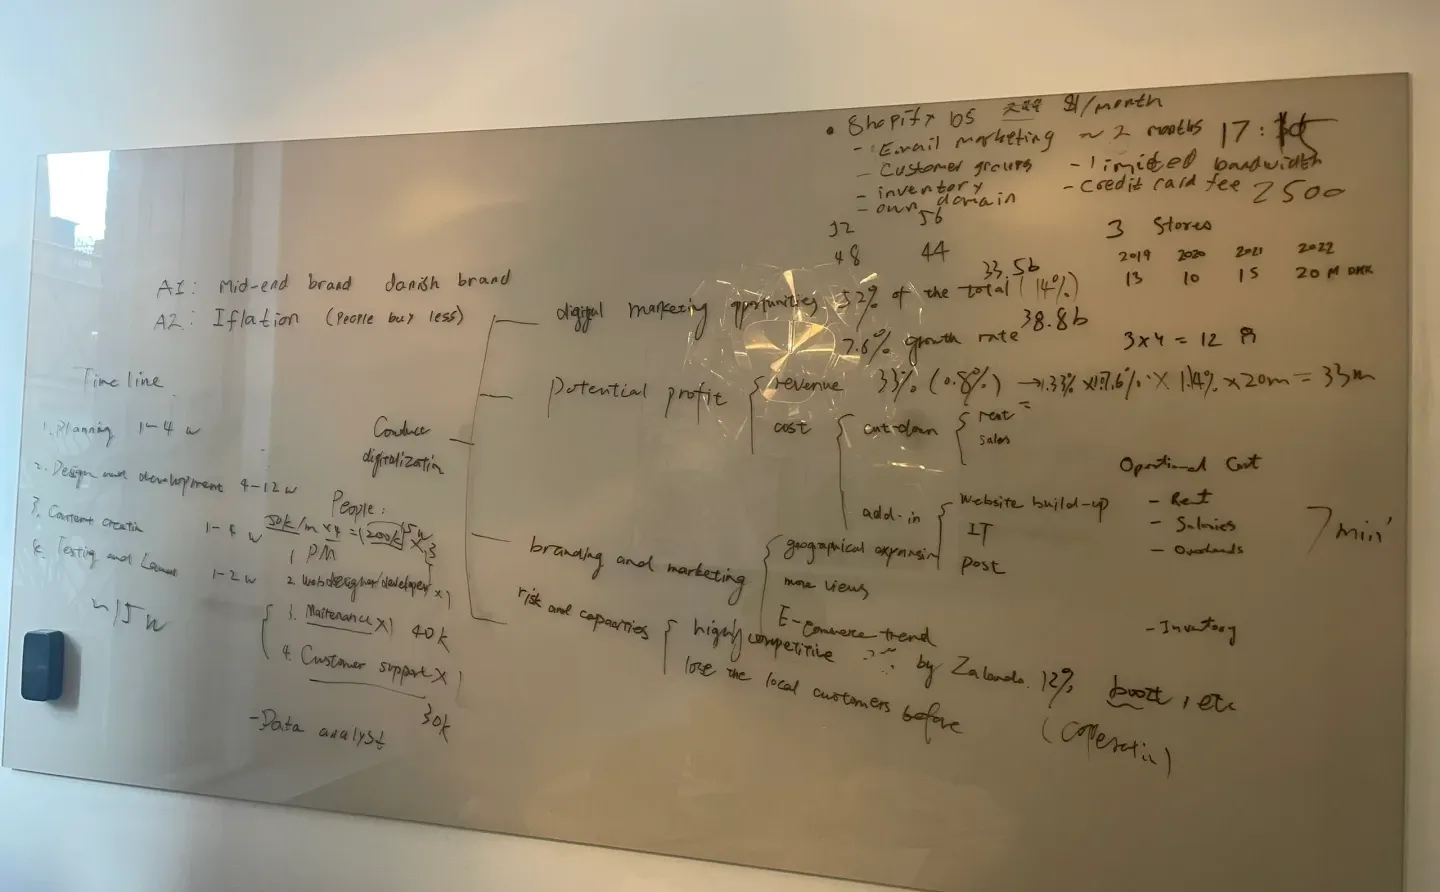 • Shopify bs $1/month
- Email marketing ~ 2 months 17:
- Customer groups - limited bandwidth
- inventory - credit card fee 2500
- own domain
32 56
48 44
3 Stores
2019 2020 2021 2022
13 10 15 20 M DKK
A1: Mid-end brand danish brand
A2: Iflation (people buy less)
Conduce digitalization
digital marketing opportunities 52% of the total (14%)
33.5b
38.8b
7.6% growth rate
3x4 = 12
Potential profit
revenue 33% (0.8%) → 1.33% x 1.14% x 20m = 33m
cost
cut-down
rent
sales
add-in
website build-up
IT
post
Oprational Cost
- Rent
- Salaries
- Overheads
- Inventory
7 min'
branding and marketing
geographical expansion
more views
E-commerce trend
risk and capacities
highly competitive by Zalando. 12% boozt, etc
lose the local customers before
Time line
1. Planning 1-4 w
2. Design and development 4-12 w
3. Content creation 1-4 w
4. Testing and Launch 1-2 w
~15 w
People:
50k/m x 4 = (200k)
1 PM
2. web designer/developer x 1
3. Maitenance x 1 40k
4. Customer support x 1
30k
- Data analyst